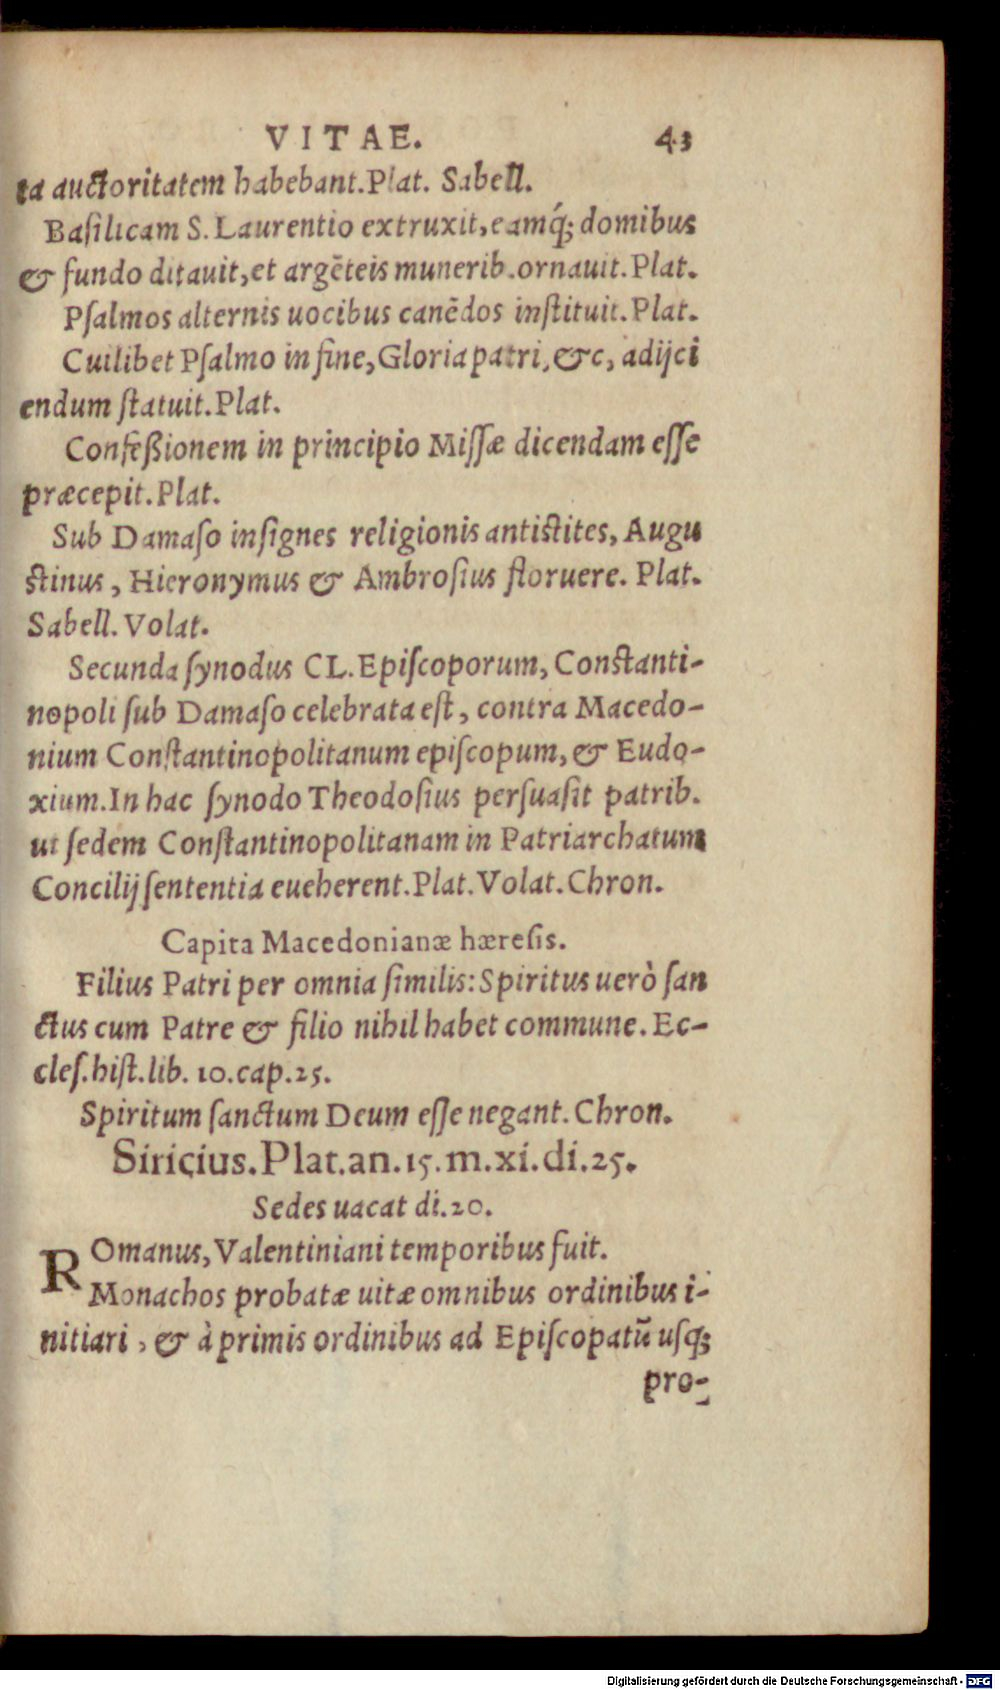 VITAE. 43
ta auctoritatem habebant.Plat. Sabell.
Basilicam S. Laurentio extruxit, eamq́; domibus
& fundo ditauit, et argēteis munerib.ornauit.Plat.
Psalmos alternis uocibus canēdos instituit.Plat.
Cuilibet Psalmo in fine, Gloria patri, &c, adijci
endum statuit.Plat.
Confeßionem in principio Missæ dicendam esse
præcepit.Plat.
Sub Damaso insignes religionis antistites, Augu
stinus, Hieronymus & Ambrosius floruere. Plat.
Sabell. Volat.
Secunda synodus CL. Episcoporum, Constanti-
nopoli sub Damaso celebrata est, contra Macedo-
nium Constantinopolitanum episcopum, & Eudo-
xium. In hac synodo Theodosius persuasit patrib.
ut sedem Constantinopolitanam in Patriarchatum
Concilij sententia eueherent.Plat.Volat.Chron.
Capita Macedonianæ hæresis.
Filius Patri per omnia similis: Spiritus uerò san
ctus cum Patre & filio nihil habet commune. Ec-
cles.hist.lib. 10.cap.25.
Spiritum sanctum Deum esse negant. Chron.
Siricius.Plat.an.15.m.xi.di.25.
Sedes uacat di.20.
ROmanus, Valentiniani temporibus fuit.
Monachos probatæ uitæ omnibus ordinibus i-
nitiari, & à primis ordinibus ad Episcopatū usq;
pro-
Digitalisierung gefördert durch die Deutsche Forschungsgemeinschaft - DFG